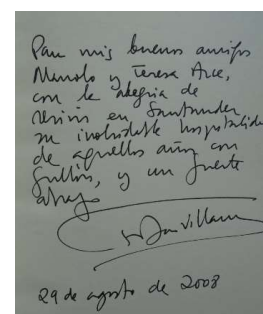 Para mis buenos amigos
Manolo y Teresa Arce,
con la alegría de
revivir en Santander
su inolvidable hospitalidad
de aquellos años con
Gullón, y un fuerte
abrazo
Villanueva
29 de agosto de 2008